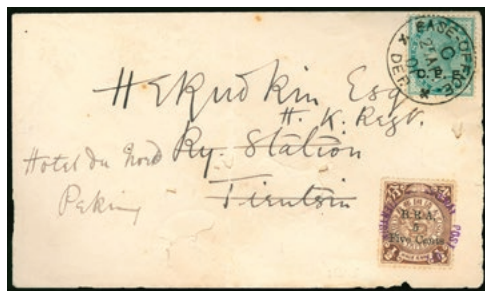 BASE-OFFICE
C
21 AP
C. E. F.
DEP.
H E Rudkin Esq
H. K. Regt.
Ry. Station
Tientsin
Hotel du Nord
Peking
B. R. A.
5
Five Cents
POST